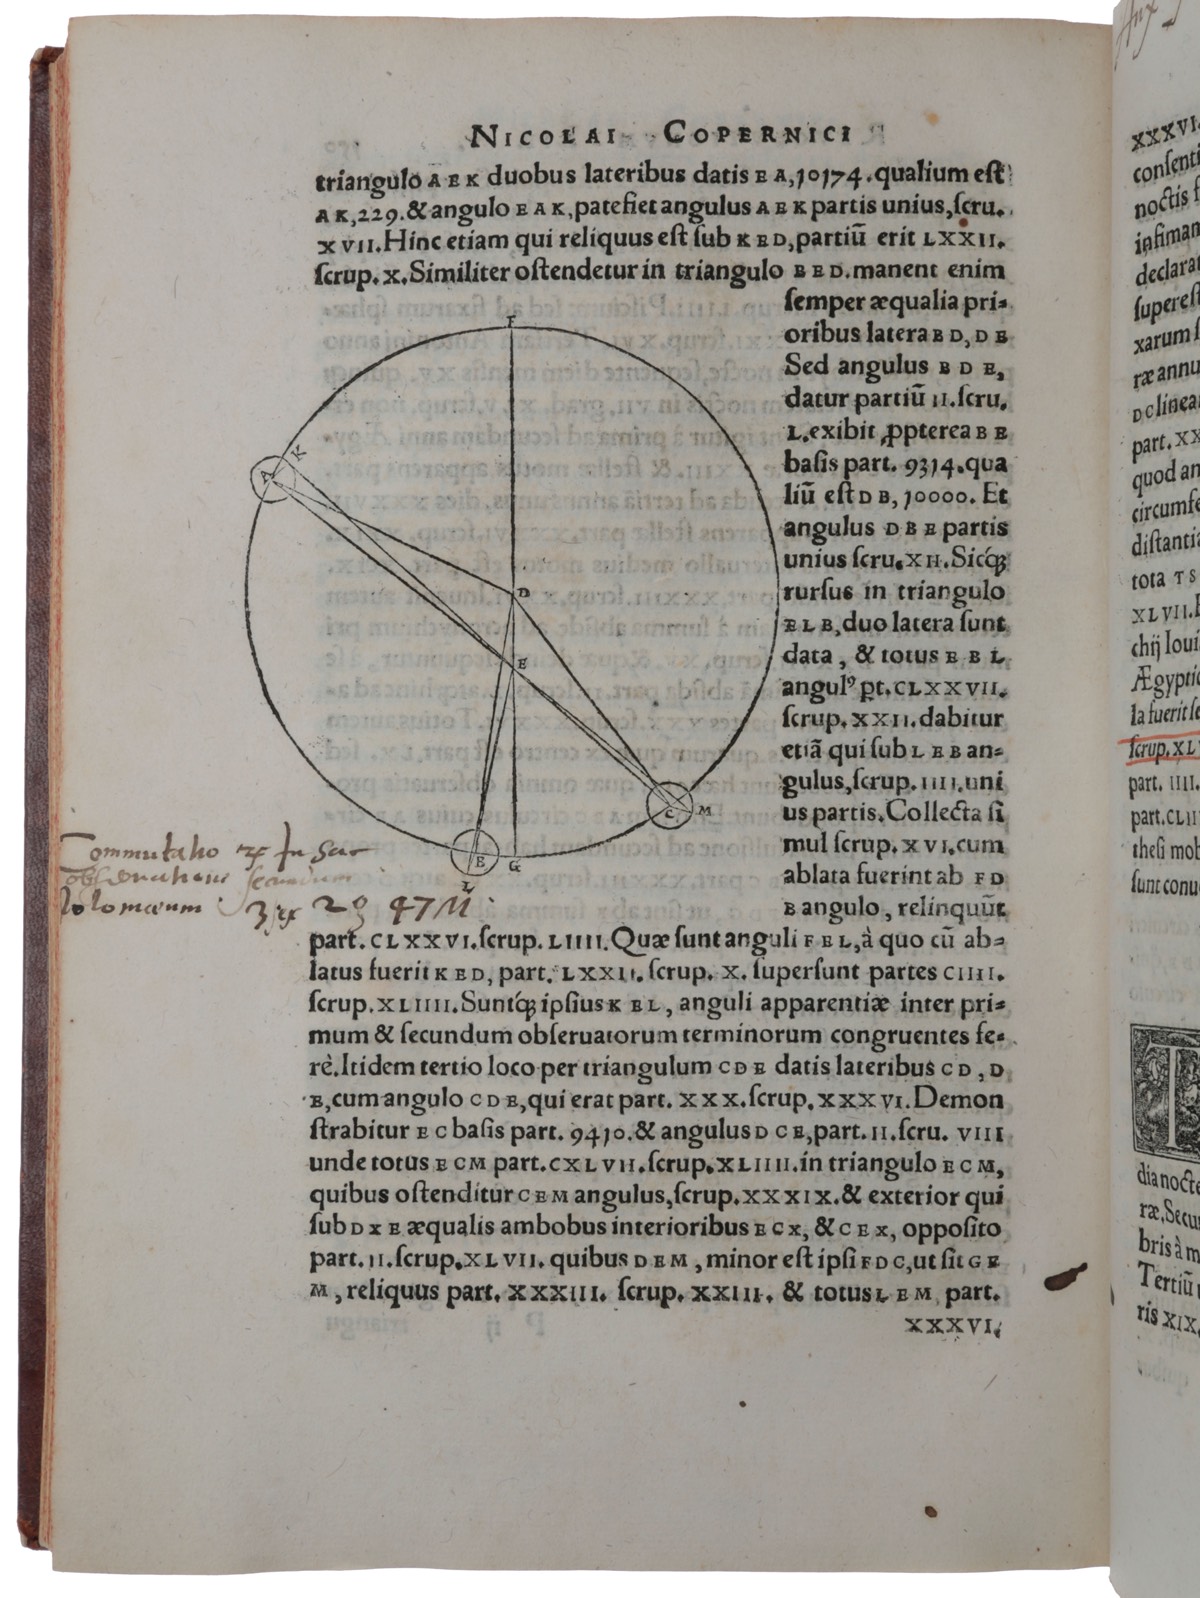 NICOLAI COPERNICI
triangulo AEK duobus lateribus datis EA, 10174. qualium est
AK, 229. & angulo EAK, patefiet angulus AEK partis unius, scru.
XVII. Hinc etiam qui reliquus est sub KED, partiũ erit LXXII.
scrup. X. Similiter ostendetur in triangulo BED. manent enim
semper æqualia pri-
oribus latera BD, DE
Sed angulus BDE,
datur partiũ II. scru.
L. exibit ꝓpterea BE
basis part. 9314. qua
liũ est DB, 10000. Et
angulus DBE partis
unius scru. XII. Sicq́ꝫ
rursus in triangulo
ELB, duo latera sunt
data, & totus EBL
angulꝰ pt. CLXXVII.
scrup. XXII. dabitur
etiã qui sub LEB an-
gulus, scrup. IIII. uni
us partis. Collecta si
mul scrup. XVI. cum
ablata fuerint ab FD
B angulo, relinquũt
part. CLXXVI. scrup. LIIII. Quæ sunt anguli FEL, à quo cũ ab-
latus fuerit KED, part. LXXII. scrup. X. supersunt partes CIIII.
scrup. XLIIII. Suntq́ꝫ ipsius KEL, anguli apparentiæ inter pri-
mum & secundum obseruatorum terminorum congruentes fe-
rè. Itidem tertio loco per triangulum CDE datis lateribus CD, D
E, cum angulo CDE, qui erat part. XXX. scrup. XXXVI. Demon
strabitur EC basis part. 9410. & angulus DCE, part. II. scru. VIII
unde totus ECM part. CXLVII. scrup. XLIIII. in triangulo ECM,
quibus ostenditur CEM angulus, scrup. XXXIX. & exterior qui
sub DXE æqualis ambobus interioribus ECX, & CEX, opposito
part. II. scrup. XLVII. quibus DEM, minor est ipsi FDC, ut sit GE
M, reliquus part. XXXIII. scrup. XXIII. & totus LEM part.
XXXVI.
F
A K
D
E
C M
B G
L
Commutatio
secundum
29 47
XXXVI.
noctis
infiman
declarat
superest
xarum
ræ annu
DC linea
part. XX
quod an
circumfe
distanti
tota TS
XLVII.
chij Ioui
Ægyptic
la fuerit se
scrup. XL
part. IIII.
part. CLII
thesi mob
sunt conu
T
dia nocte
ræ. Secu
bris à m
Tertiũ
ris XIX.